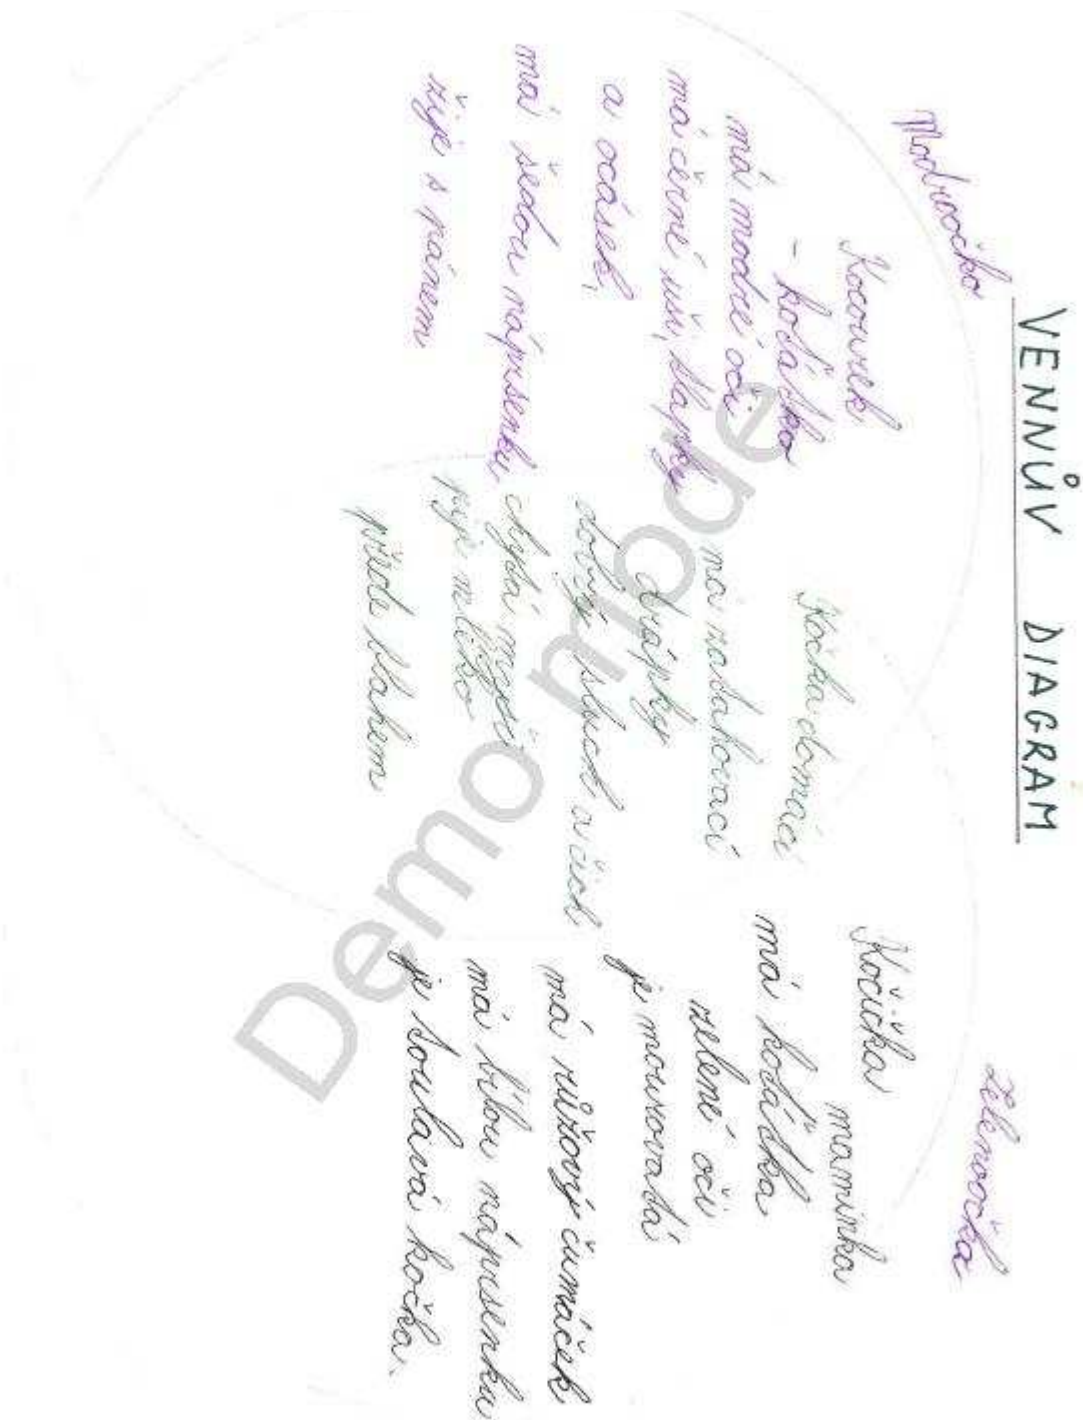 VENNŮV DIAGRAM
Modroočko
Zelenoočka
Kocourek
- koťátko
má modré oči
má černé uši, tlapky
a ocásek,
má šedou náprsenku
žije s pánem
Kočka domácí
má zatahovací
drápky
dobrý sluch a čich
chytá myši
pije mlíko
přede blahem
Kočička
maminka
má koťátka
zelené oči
je mourovatá
má růžový čumáček
má bílou náprsenku
je toulavá kočka.
Demo mode